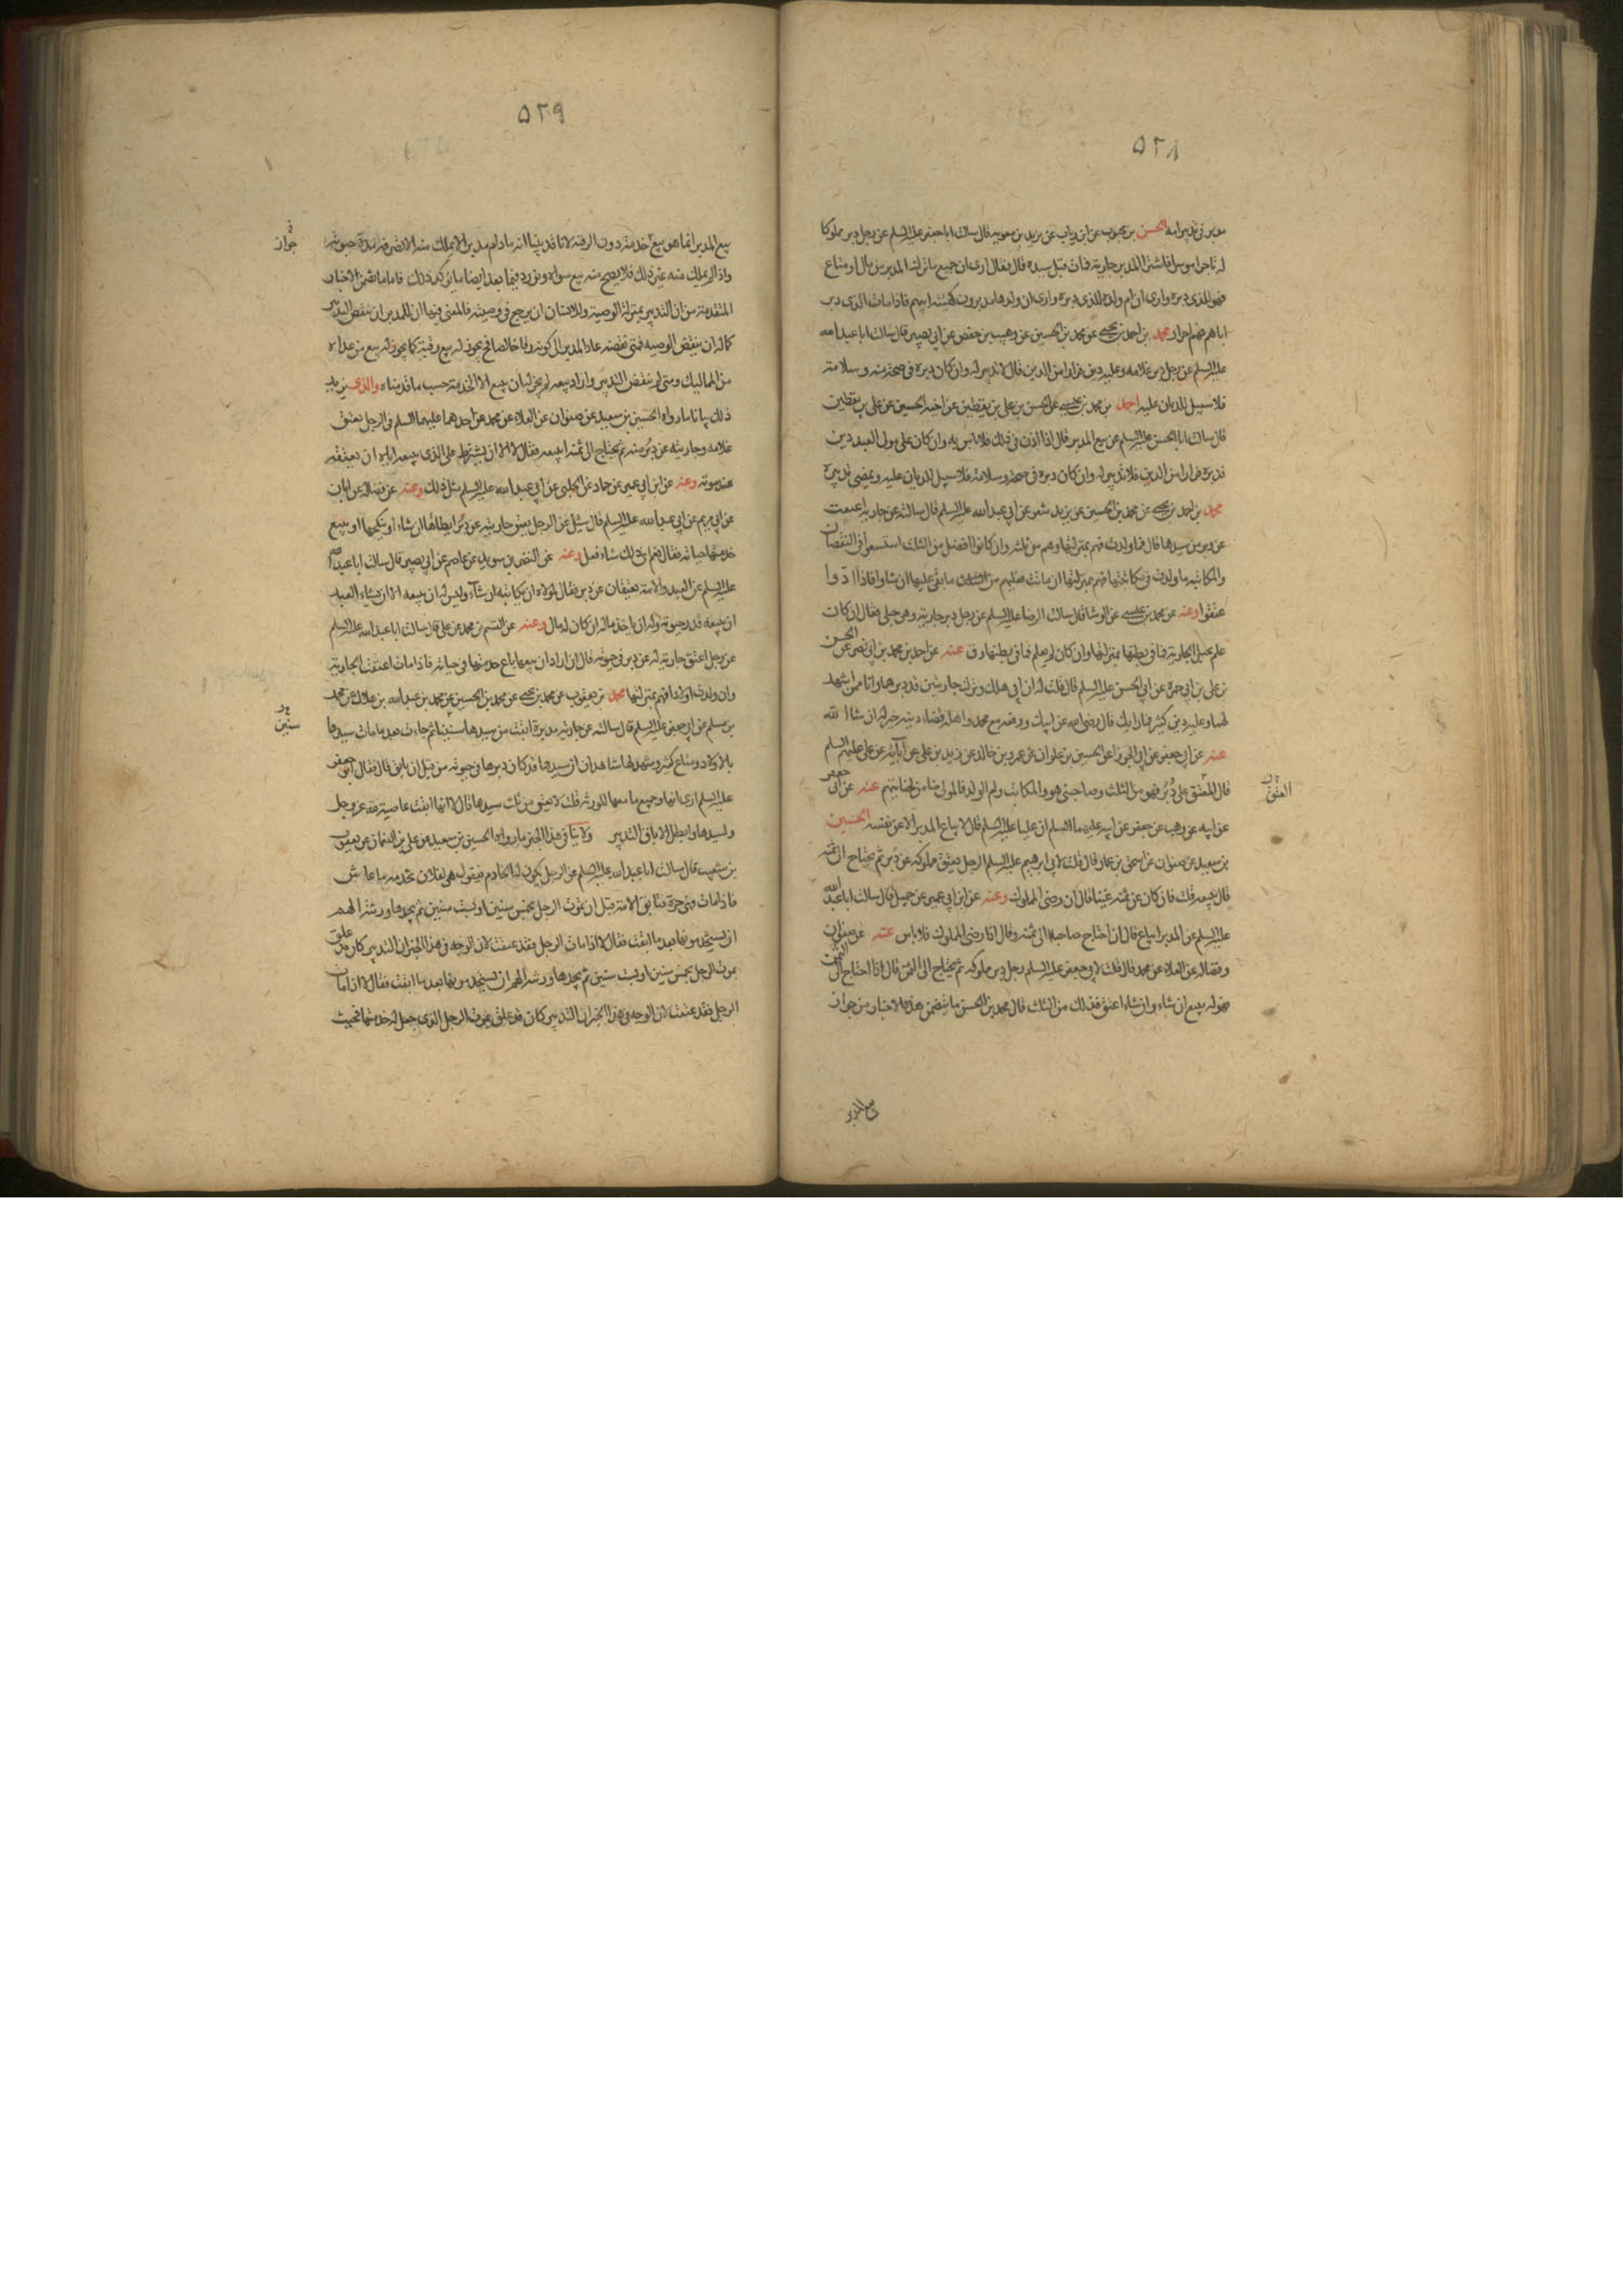 ٥٢٨
مدبر في تدبير امه الحسن بن محبوب عن ابن رياب عن بريد بن معويه قال سالت ابا جعفر عليه السلم عن رجل دبر مملوكا
له تاجرا موسرا فاشترى المدبر جارية فمات قبل سيده قال فقال ارى ان جميع ما ترك المدبر من مال او متاع
فهو للذي دبره وارى ان ام ولده للذي دبره وارى ان ولدها مدبرون كهيئة ابيهم فاذا مات الذي دبر
اباهم فهم احرار محمد بن احمد بن يحيى عن محمد بن الحسين عن وهيب بن حفص عن ابي بصير قال سالت ابا عبد الله
عليه السلم عن رجل دبر غلامه وعليه دين فرارا من الدين قال لا تدبير له وان كان دبره في صحة منه وسلامة
فلا سبيل للديان عليه احمد بن محمد بن عيسى عن الحسن بن علي بن يقطين عن اخيه الحسين عن علي بن يقطين
قال سالت ابا الحسن عليه السلم عن بيع المدبر قال اذا اذن في ذلك فلا باس به وان كان على مولى العبد دين
فدبره فرارا من الدين فلا تدبير له وان كان دبره في صحة وسلامة فلا سبيل للديان عليه ويمضي تدبيره
محمد بن احمد بن يحيى عن محمد بن الحسين عن يزيد شعر عن ابي عبد الله عليه السلم قال سالته عن جارية اعتقت
عن دبر من سيدها قال فما ولدت فهم بمنزلتها وهم من ثلثه وان كانوا افضل من الثلث استسعوا في النقصان
والمكاتبه ما ولدت في مكاتبتها فهم بمنزلتها ان ماتت فعليهم ما بقي عليها ان شاوا فاذا ادوا
عتقوا وعنه عن محمد بن عيسى عن الوشا قال سالت الرضا عليه السلم عن رجل دبر جارية وهي حبلى فقال ان كان
علم بحبل الجارية فما في بطنها بمنزلتها وان كان لم يعلم فما في بطنها رق عنه عن احمد بن محمد بن ابي نصر عن الحسن
بن علي بن ابي حمزة عن ابي الحسن عليه السلم قال قلت له ان ابي هلك وترك جاريتين قد دبرهما وانا ممن اشهد
لهما وعليه دين كثير فما رايك قال رضي الله عن ابيك ورفعه مع محمد واهله قضاء دينه خير له ان شا الله
عنه عن ابي جعفر عن ابي الجوزا عن الحسين بن علوان عن عمرو بن خالد عن زيد بن علي عن آبائه عن علي عليهم السلم
قال المعتق على دُبُر فهو من الثلث وما جنى هو والمكاتب وام الولد فالمولى ضامن لجنايتهم عنه عن ابي جعفر
العتق
عن ابيه عن وهب عن جعفر عن ابيه عليهما السلم ان عليا عليه السلم قال لا يباع المدبر الا من نفسه الحسين
بن سعيد عن صفوان عن اسحق بن عمار قال قلت لابي ابرهيم عليه السلم الرجل يعتق مملوكه عن دبر ثم يحتاج الى ثمنه
قال يبيعه قلت فان كان عن ثمنه غنيا قال ان رضي المملوك وعنه عن ابن ابي عمير عن جميل قال سالت ابا عبد الله
عليه السلم عن المدبر ايباع قال ان احتاج صاحبه الى ثمنه وقال اذا رضي المملوك فلا باس عنه عن صفوان
وفضاله عن العلاء عن محمد قال قلت لابي جعفر عليه السلم رجل دبر مملوكه ثم يحتاج الى الثمن قال اذا احتاج الى الثمن
فهو له يبيع ان شاء وان شاء اعتق فذلك من الثلث قال محمد بن الحسن ما يتضمن هذه الاخبار من جواز
بيع المدبر
٥٢٩
بيع المدبر انما هو بيع خدمته دون الرقبة لانا قد بينا انه مادام مدبرا لا يملك منه الا تصرفه مدة حيوته
جواز
واذا لم يملك منه غير ذلك فلا يصح منه بيع سواه ونورد فيما بعد ايضا ما يؤكد ذلك فاما ما تضمن الاخبار
المتقدمة من ان التدبير بمنزلة الوصية وللانسان ان يرجع في وصيته فالمعنى فيها ان للمدبر ان ينقض التدبير
كما له ان ينقض الوصيه فمتى نقضه عاد المدبر الى كونه رقا خالصا فح يجوز له بيع رقبته كما يجوز له بيع من عداه
من المماليك ومتى لم ينقض التدبير واراد بيعه لم يجز له ان يبيع الا الخدمة حسب ما قدمناه والذي يزيد
ذلك بيانا ما رواه الحسين بن سعيد عن صفوان عن العلاء عن محمد عن احدهما عليهما السلم في الرجل يعتق
غلامه وجاريته عن دبر منه ثم يحتاج الى ثمنه ايبيعه فقال لا الا ان يشترط على الذي يبيعه اياه ان يعتقه
عند موته وعنه عن ابن ابي عمير عن حماد عن الحلبي عن ابي عبد الله عليه السلم مثل ذلك وعنه عن فضاله عن ابان
عن ابي مريم عن ابي عبد الله عليه السلم قال سئل عن الرجل يعتق جاريته عن دبر ايطاها ان شاء او ينكحها او يبيع
خدمتها حياته فقال نعم اي ذلك شاء فعل وعنه عن النضر بن سويد عن عاصم عن ابي بصير قال سالت ابا عبد الله
عليه السلم عن العبد والامة يعتقان عن دبر فقال لمولاه ان يكاتبه ان شآء وليس له ان يبيعه الا ان يشاء العبد
ان يبيعه قدر حيوته وله ان ياخذ ماله ان كان له مال وعنه عن القسم بن محمد عن علي قال سالت ابا عبد الله عليه السلم
عن رجل اعتق جارية له عن دبر في حيوته قال ان اراد ان يبيعها باع خدمتها في حياته فاذا مات اعتقت الجارية
وان ولدت اولادا فهم بمنزلتها محمد بن يعقوب عن محمد بن يحيى عن محمد بن الحسين عن محمد بن عبد الله بن هلال عن محمد
بن مسلم عن ابي جعفر عليه السلم قال سالته عن جارية مدبرة ابقت من سيدها سنينا ثم جاءت بعد ما مات سيدها
سنين
باولاد ومتاع كثير وشهد لها شاهدان ان سيدها قد كان دبرها في حيوته من قبل ان تابق قال فقال ابو جعفر
عليه السلم ارى انها وجميع ما معها للورثة قلت لا تعتق من ثلث سيدها قال لا انها ابقت عاصية لله عز وجل
ولسيدها وابطل الاباق التدبير ولا ينافي هذا الخبر ما رواه الحسين بن سعيد عن علي بن النعمان عن يعقوب
بن شعيب قال سالت ابا عبد الله عليه السلم عن الرجل يكون له الخادم فيقول هي لفلان تخدمه ما عاش
فاذا مات فهي حرة فتابق الامة قبل ان يموت الرجل بخمس سنين او ست سنين ثم يجدها ورثته الهم
ان يستخدموها بعد ما ابقت فقال لا اذا مات الرجل فقد عتقت لان الوجه في هذا الخبر ان التدبير كان قد علق
بموت الرجل بخمس سنين او ست سنين ثم يجدها ورثته الهم ان يستخدموها بعد ما ابقت فقال لا اذا مات
الرجل فقد عتقت لان الوجه في هذا الخبر ان التدبير كان قد علق بموت الرجل الذي جعل له خدمتها فحيث